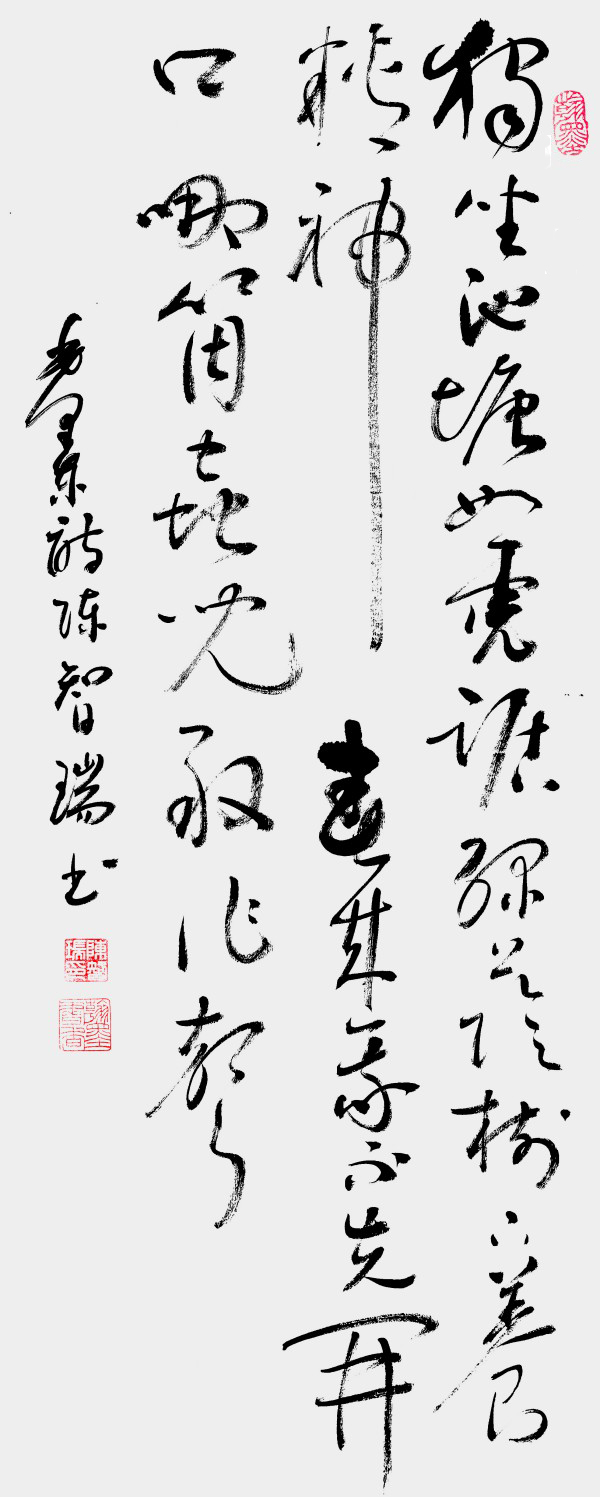 獨坐池塘如虎踞綠蔭樹下養
精神春來我不先開
口哪箇蟲兒敢作聲
毛澤東詩陈智瑞书
翰墨